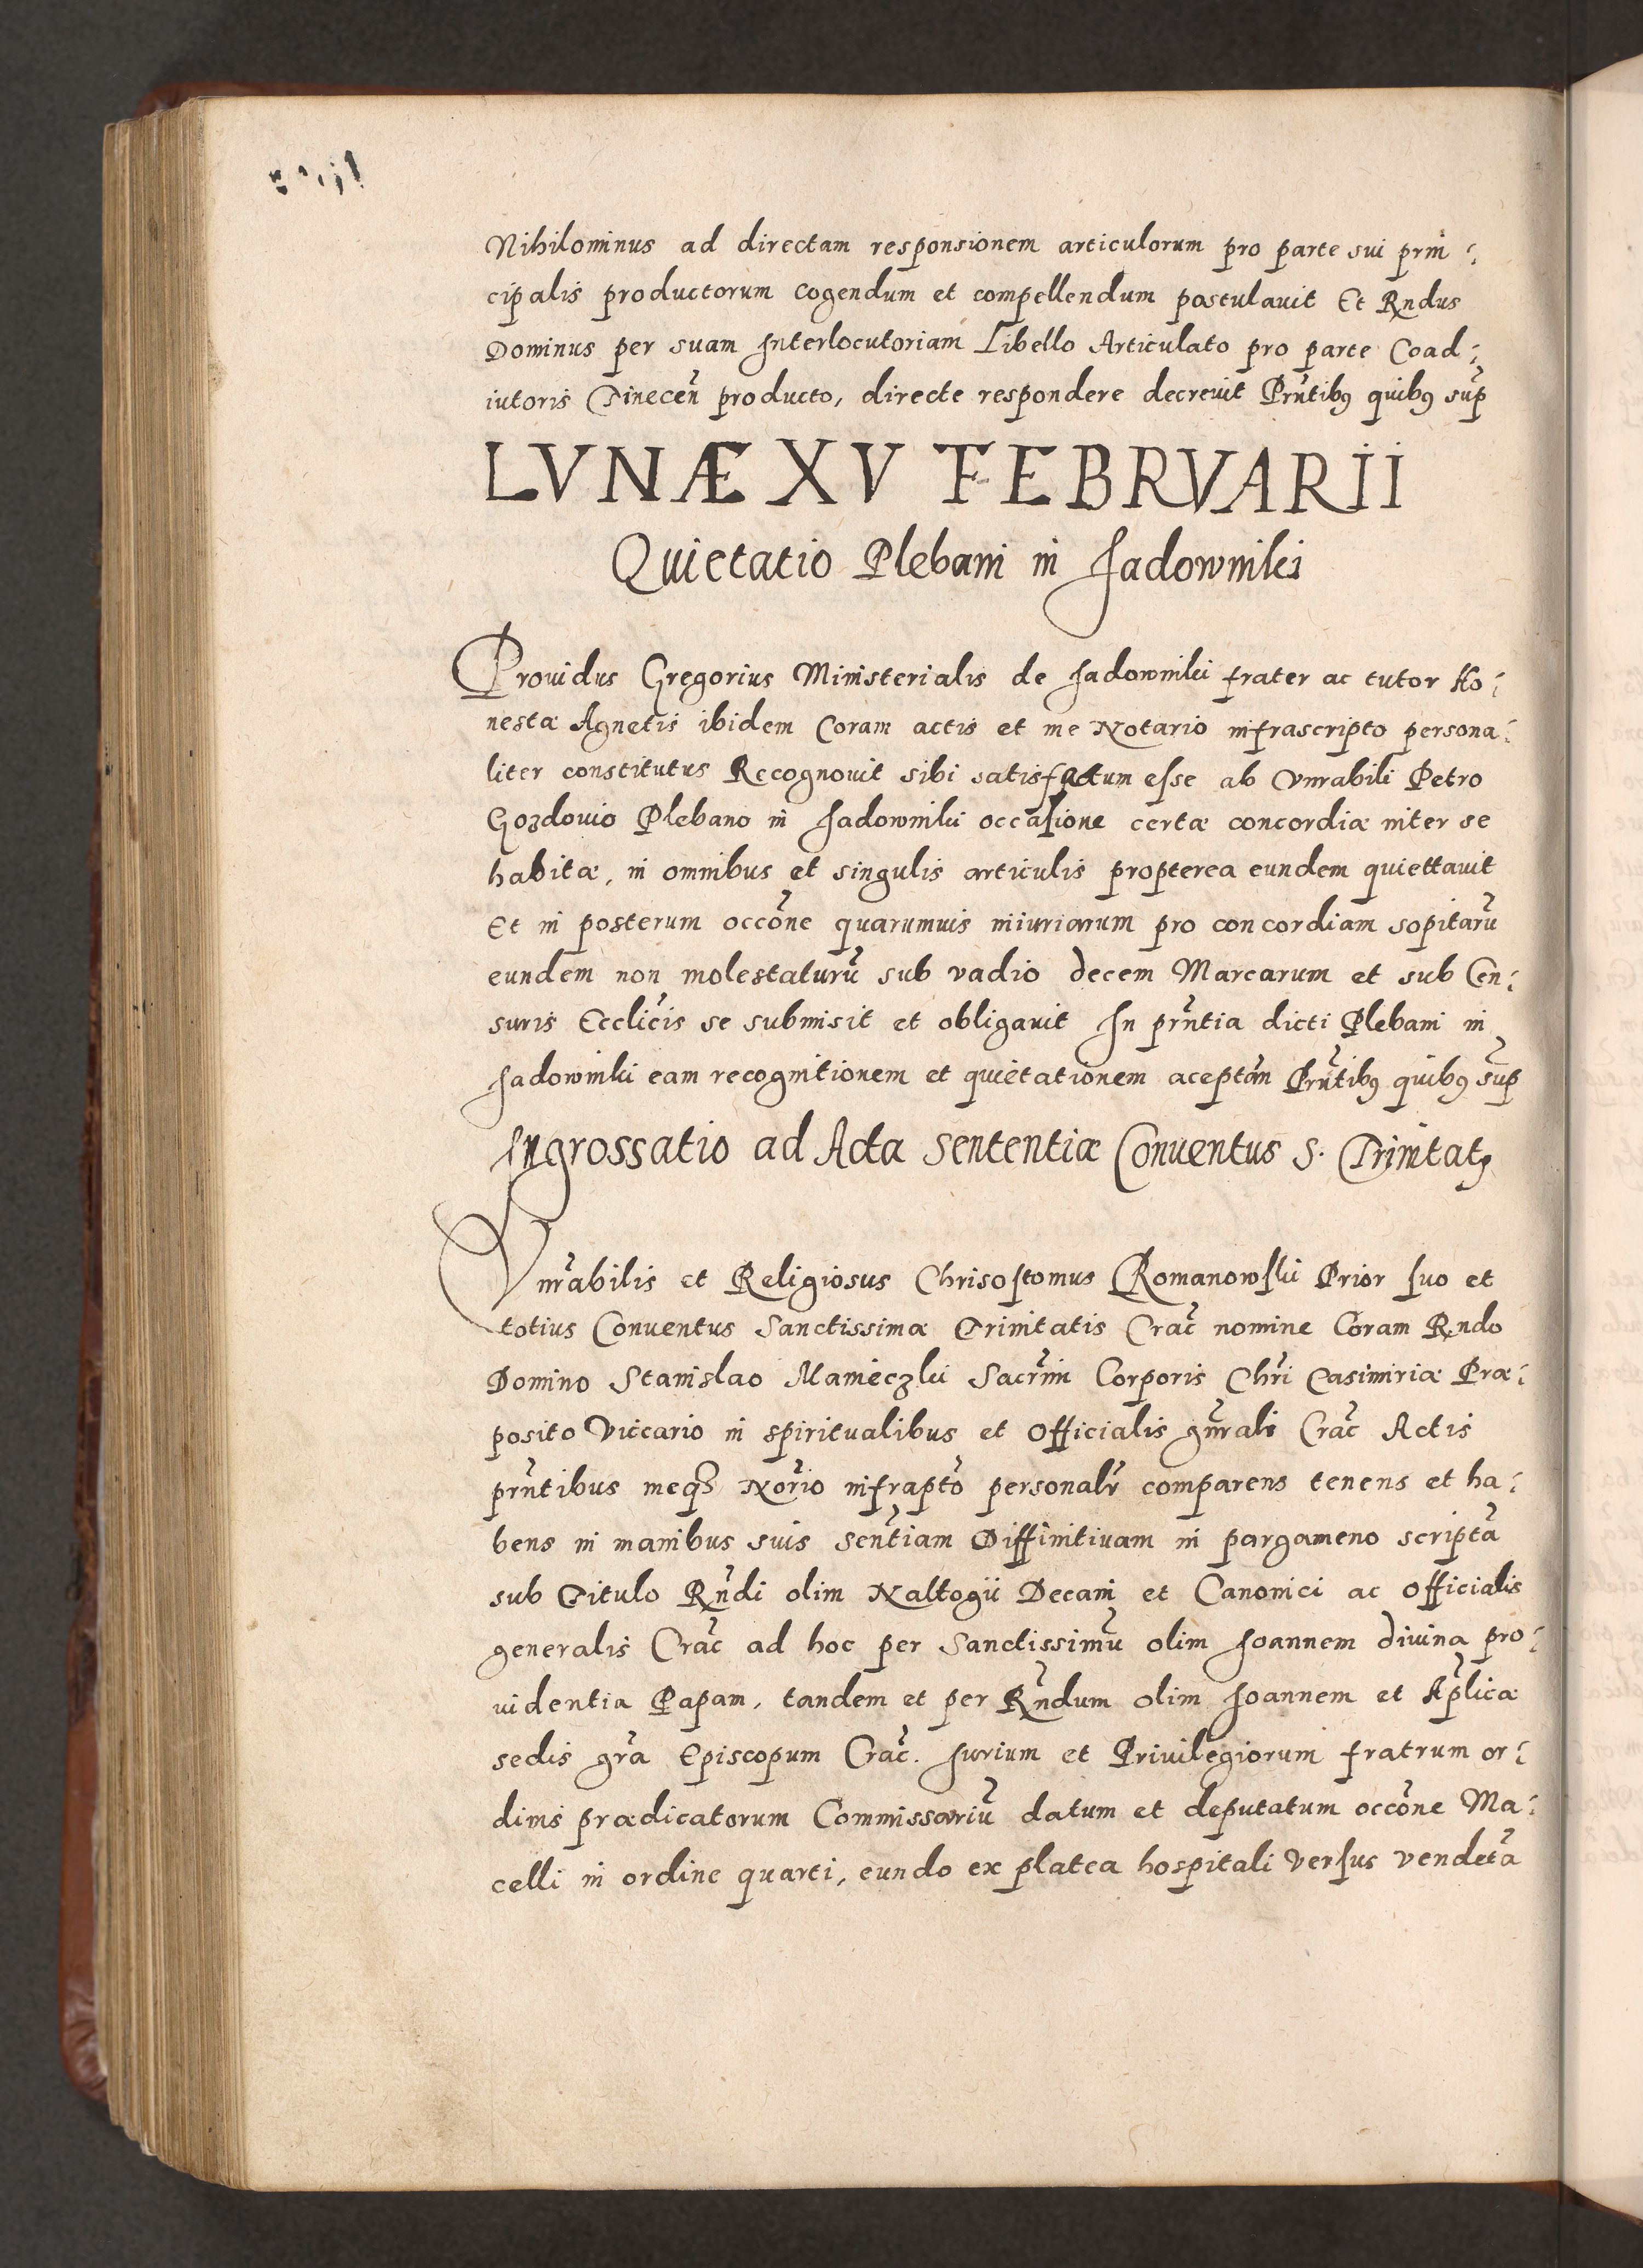 Nihilominus ad directam responsionem articulorum pro parte sui prin:
cipalis productorum cogendum et compellendum postulauit Et Rndus
Dominus per suam Interlocutoriam Libello Articulato pro parte Coad:
iutoris Tinecen̄ producto, directe respondere decreuit Prn̄tibꝯ quibꝯ sup̄
LVNÆ XV FEBRVARII
Quietatio Plebani in Jadowniki
Prouidus Gregorius Ministerialis de Jadowniki frater ac tutor Ho:
nestæ Agnetis ibidem Coram actis et me Notario infrascripto persona:
liter constitutus Recognouit sibi satisfactum eſse ab Vnrabili Petro
Gozdouio Plebano in Jadowniki occaſione certæ concordiæ inter se
habitæ, in omnibus et singulis articulis propterea eundem quiettauit
Et in posterum occōne quarumuis iniuriarum pro concordiam sopitarū
eundem non molestaturū sub vadio decem Marcarum et sub Cen:
suris Eccl̄icis se submisit et obligauit In prn̄tia dicti Plebani in
Jadowniki eam recognitionem et quietationem aceptān Prn̄tibꝯ quibꝯ sup̄
Ingrossatio ad Acta Sententiæ Conuentus S. Trinitatꝭ
Vnr̄abilis et Religiosus Chrisoſtomus Romanowſki Prior ſuo et
totius Conuentus Sanctissimæ Trinitatis Crac̄ nomine Coram Rndo
Domino Stanislao Mamieczki Sacr̄mi Corporis Chr̄i Casimiriæ Præ:
posito Viccario in spiritualibus et Officialis gn̄rali Crac̄ Actis
prn̄tibus meqꝫ Nor̄io infrap̄to personalr̄ comparens tenens et ha:
bens in manibus suis sen̄tiam Diffinitiuam in pargameno scriptā
sub Titulo Rn̄di olim Naltogii Decani et Canonici ac Officialis
generalis Crac̄ ad hoc per Sanctissimū olim Joannem diuina pro:
uidentia Papam, tandem et per Rn̄dum olim Joannem et Ap̄licæ
sedis gr̄a Episcopum Crac̄. Jurium et Priuilegiorum fratrum or:
dinis prædicatorum Commissariū datum et deputatum occōne Ma:
celli in ordine quarti, eundo ex platea hospitali Verſus vendetā